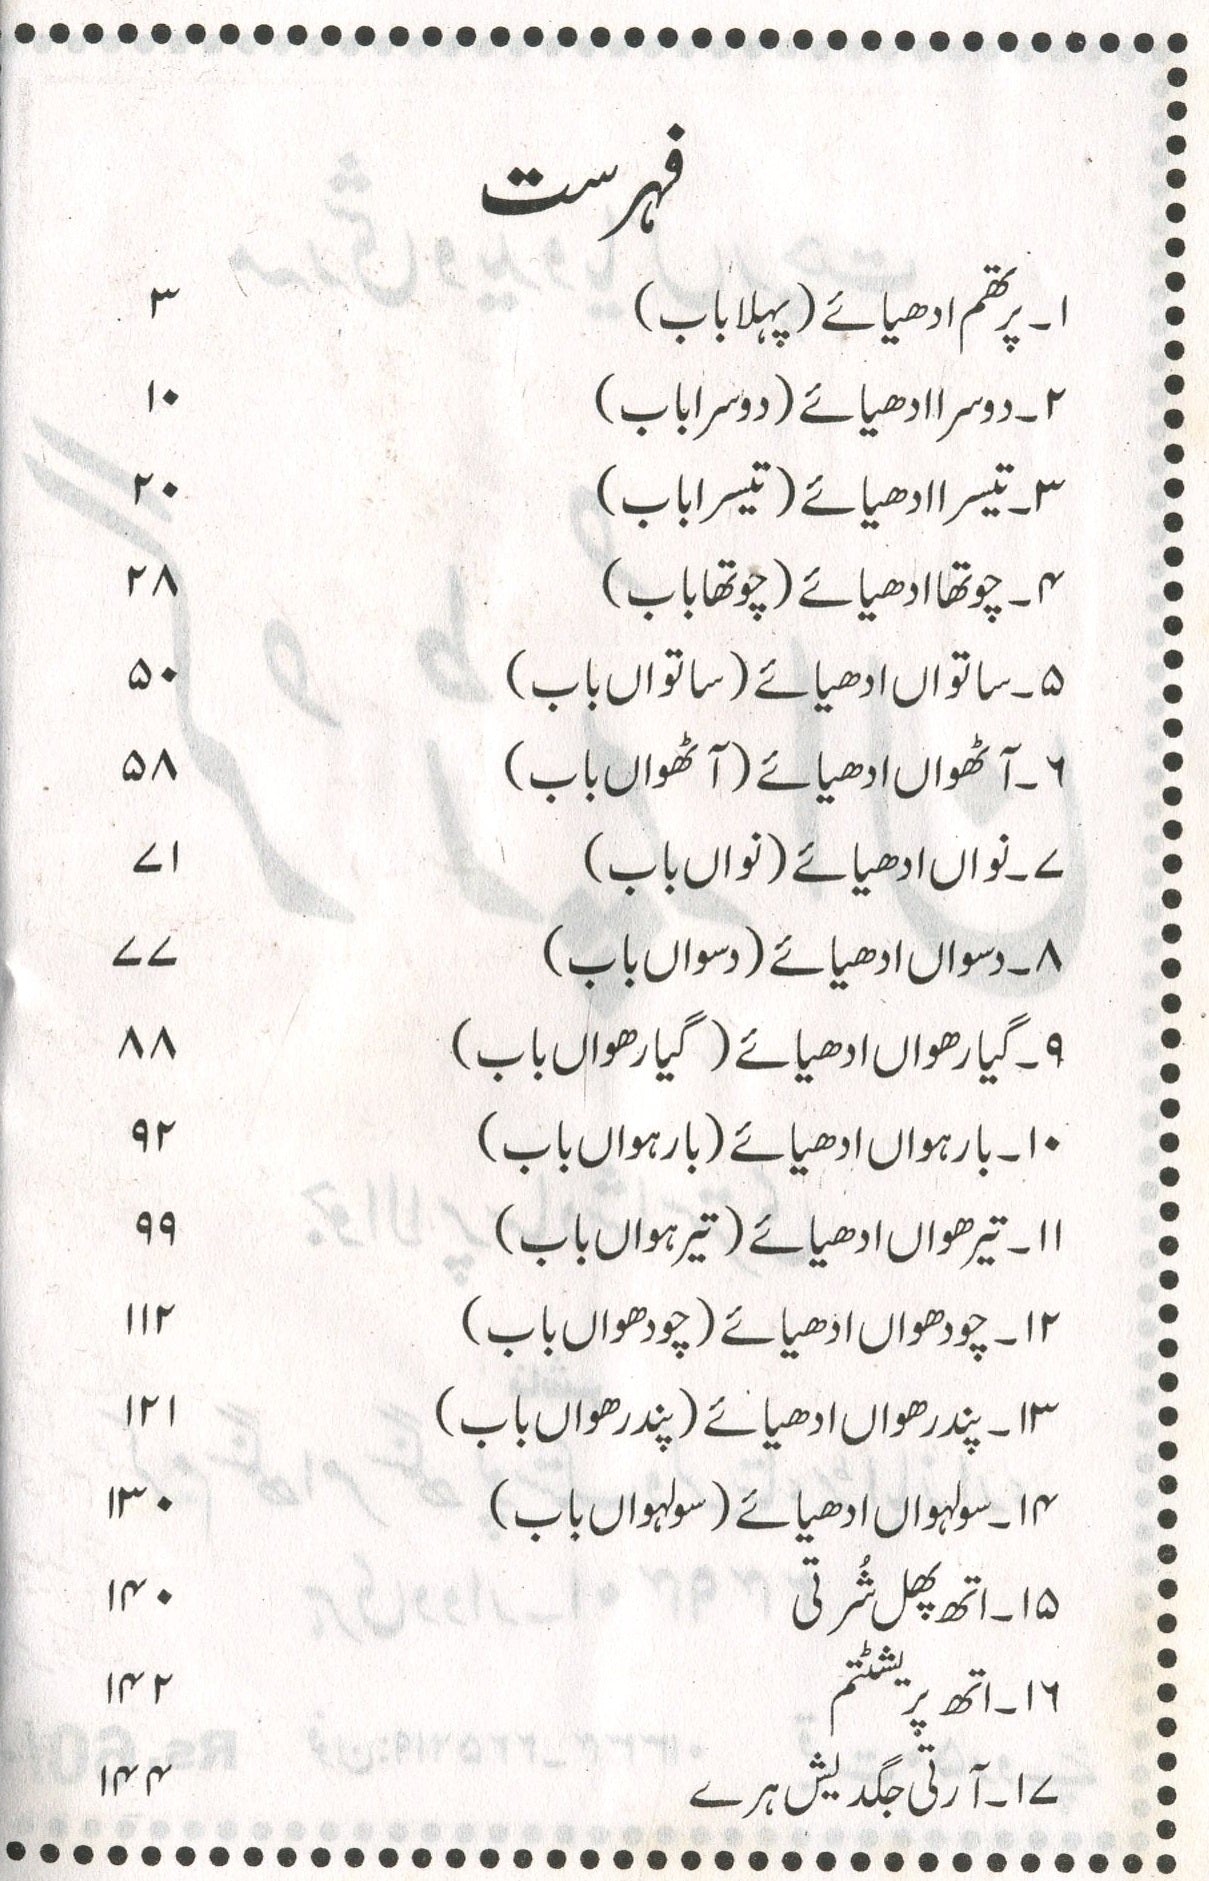 فہرست
۱۔ پرتھم ادھیائے (پہلا باب) ۳
۲۔ دوسرا ادھیائے (دوسرا باب) ۱۰
۳۔ تیسرا ادھیائے (تیسرا باب) ۲۰
۴۔ چوتھا ادھیائے (چوتھا باب) ۲۸
۵۔ ساتواں ادھیائے (ساتواں باب) ۵۰
۶۔ آٹھواں ادھیائے (آٹھواں باب) ۵۸
۷۔ نواں ادھیائے (نواں باب) ۷۱
۸۔ دسواں ادھیائے (دسواں باب) ۷۷
۹۔ گیارھواں ادھیائے (گیارھواں باب) ۸۸
۱۰۔ بارہواں ادھیائے (بارہواں باب) ۹۲
۱۱۔ تیرھواں ادھیائے (تیرہواں باب) ۹۹
۱۲۔ چودھواں ادھیائے (چودھواں باب) ۱۱۲
۱۳۔ پندرھواں ادھیائے (پندرھواں باب) ۱۲۱
۱۴۔ سولہواں ادھیائے (سولہواں باب) ۱۳۰
۱۵۔ اتھ پھل شُرتی ۱۴۰
۱۶۔ اتھ پریشٹتم ۱۴۲
۱۷۔ آرتی جگدیش ہرے ۱۴۴